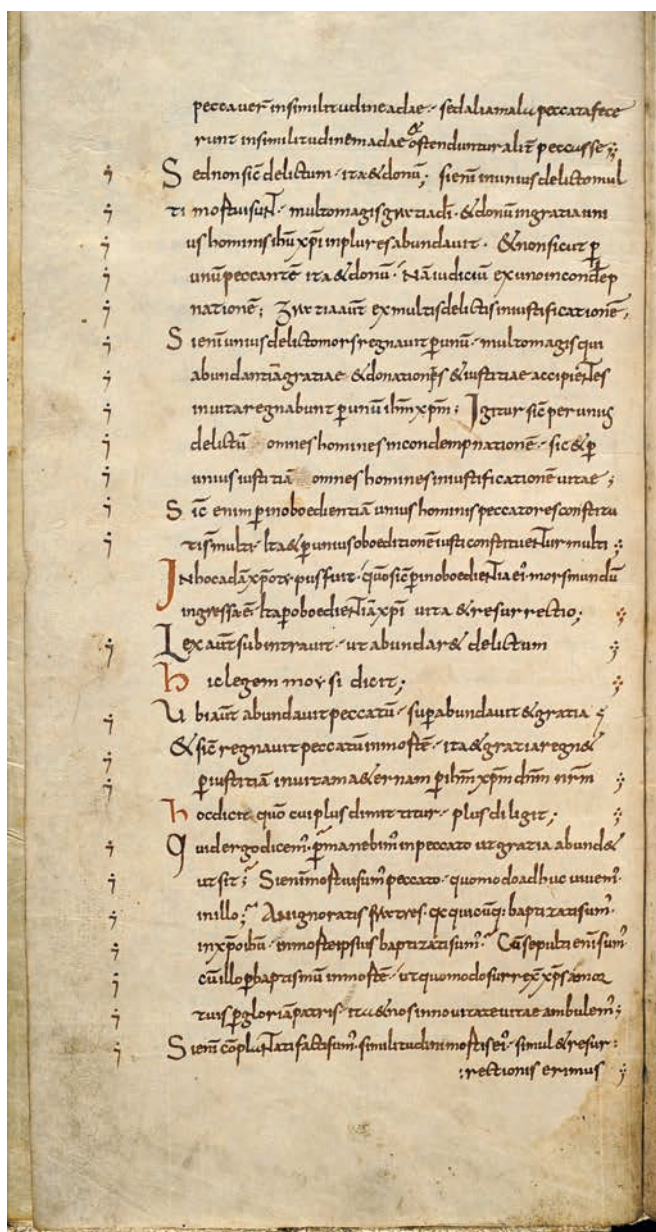 peccaver̄ insimilitudine adae · sed alia mala peccata fece
runt insimilitudinem adae & ostenduntur alit̄ peccasse ;
Sed non sic̄ delictum · ita & donū ; si enī inunius delicto mul
ti mortui sunt · multo magis gratia dī · & donū ingratia uni
us hominis ihū xp̄i inplures abundavit · & non sicut p̄
unū peccantē ita & donū · Nā iudiciū ex uno in condēp
nationē ; gratia aut̄ ex multis delictis iniustificationē ;
Si enī unius delicto mors regnavit p̄ unū · multo magis qui
abundantiā gratiae & donationis & iustitiae accipientes
in vita regnabunt p̄ unū ihm̄ xpm̄ ; Igitur sic̄ per unius
delictū omnes homines incondempnationē · sic & p̄
unius iustitiā omnes homines iniustificationē vitae ;
Sic̄ enim p̄ inoboedientiā unius hominis peccatores constitu
ti s̄ multi · Ita & p̄ unius oboeditionē iusti constituentur multi ;
In hoc adā xp̄o typus fuit · quō sic̄ p̄ inoboedientia ei' mors mundū
ingressa ē · Ita p̄ oboedientiā xp̄i vita & resurrectio ;
Lex aut̄ subintravit · ut abundar& delictum
hic legem moysi dicit ;
Ubi aut̄ abundavit peccatū · sup̄abundavit & gratia ;
& sic̄ regnavit peccatū inmortē · ita & gratia regn&
p̄ iustitiā invitam a&ernam p̄ ihm̄ xpm̄ dnm̄ nrm̄
hoc dicit quō cui plus dimittitur · plus diligit ;
Quid ergo dicem' · p̄manebim' in peccato ut gratia abund&
ut sit ; Si enī mortui sum' peccato · quomodo adhuc vivem'
inillo ; An ignoratis fratres · q̄a quicūq: baptizati sum'
in xp̄o ihū · inmorte ipsius baptizati sum' · Cū sepulti enī sum'
cū illo p̄ baptismū inmortē · ut quomodo surrex̄ xp̄s a mor
tuis p̄ gloriā patris · ita & nos innovitate vitae ambulem' ;
Si enī cōplantati facti sum' similitudini mortis ei' · simul & resur :
: rectionis erimus ;